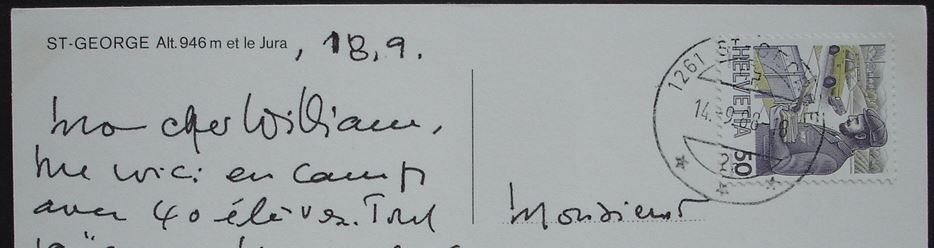 ST-GEORGE Alt. 946 m et le Jura , 18.9.
Mon cher William,
me voici en camp
avec 40 élèves. Tout
Monsieur
1261 ST-GEORGE
14.-9.88
HELVETIA
50